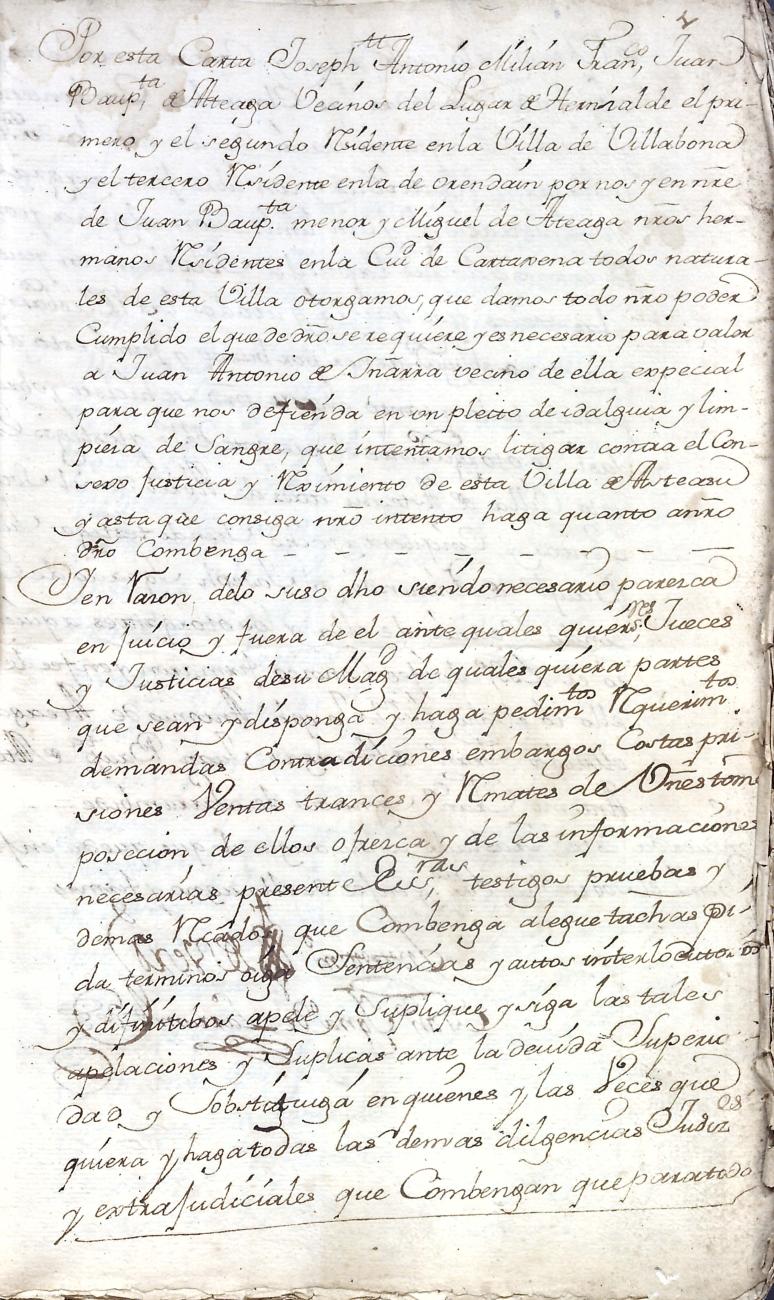 Por esta Carta Joseph Antonio Milián Franco, Juan
Baupta de Ateaga Vecinos del Lugar de Hernialde el pri-
mero y el segundo Residente en la Villa de Villabona
y el tercero Residente en la de orendain por nos y en nre
de Juan Baupta menor y Miguel de Ateaga nros her-
manos Residentes en la Ciud de Cartaxena todos natura-
les de esta Villa otorgamos, que damos todo nro poder
Cumplido el que de dro se requiere y es necesario para valor
a Juan Antonio de Iñarra vecino de ella expecial
para que nos defienda en un pleito de idalguia y lim-
pieza de Sangre, que intentamos litigar contra el Con-
sexo Justicia y Reximiento de esta Villa de Asteasu
y asta que consiga nro intento haga quanto a nro
dro Combenga - - - - - - -
Y en Razon, de lo suso dho siendo necesario parezca
en Juicio y fuera de el ante quales quierés, Jueces
y Justicias de su Magd de quales quiera partes
que sean y disponga y haga pedimtos Requerimtos
demandas Contradiciones embargos Costas pri-
siones Ventas trances y Remates de Vnes tom
posecion de ellos ofrezca y de las informaciones
necesarias presente Essras, testigos pruebas y
demas Recados que Combenga alegue tachas pi-
da terminos oiga Sentencias y autos interlocutorios
y difinitibos apele y Suplique y siga las tales
apelaciones y Suplicas ante la devida Superio-
dad y Sobstituiga en quienes y las Veces que
quiera y haga todas las demas diligencias Judiz es
y extraJudiciales que Combengan que para todo